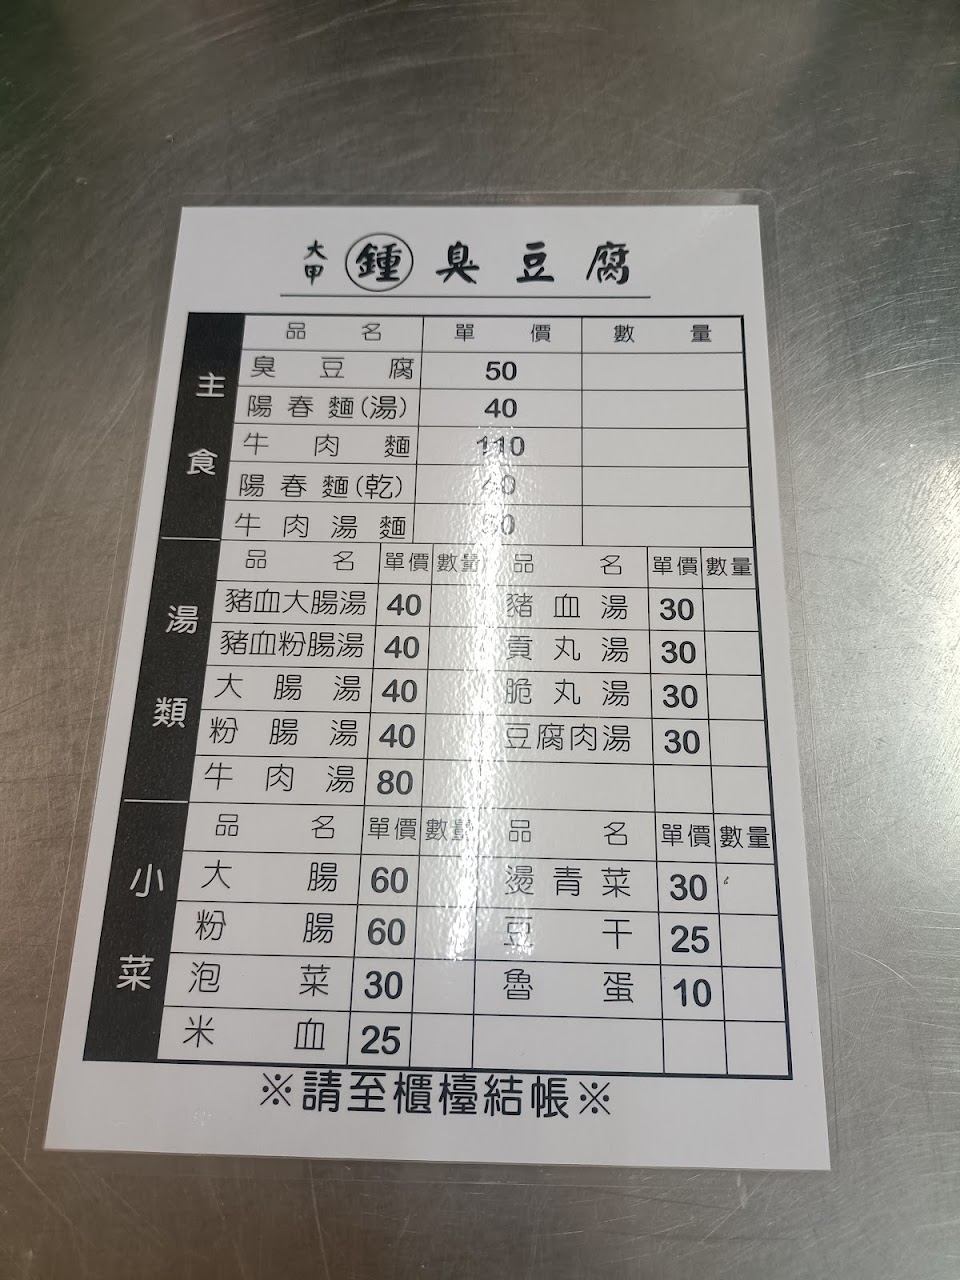 大甲 鍾 臭豆腐
主食
品名 單價 數量
臭豆腐 50
陽春麵(湯) 40
牛肉麵 110
陽春麵(乾) 40
牛肉湯麵
湯類
品名 單價 數量 品名 單價 數量
豬血大腸湯 40 豬血湯 30
豬血粉腸湯 40 貢丸湯 30
大腸湯 40 脆丸湯 30
粉腸湯 40 豆腐肉湯 30
牛肉湯 80
小菜
品名 單價 數量 品名 單價 數量
大腸 60 燙青菜 30
粉腸 60 豆干 25
泡菜 30 魯蛋 10
米血 25
※請至櫃檯結帳※